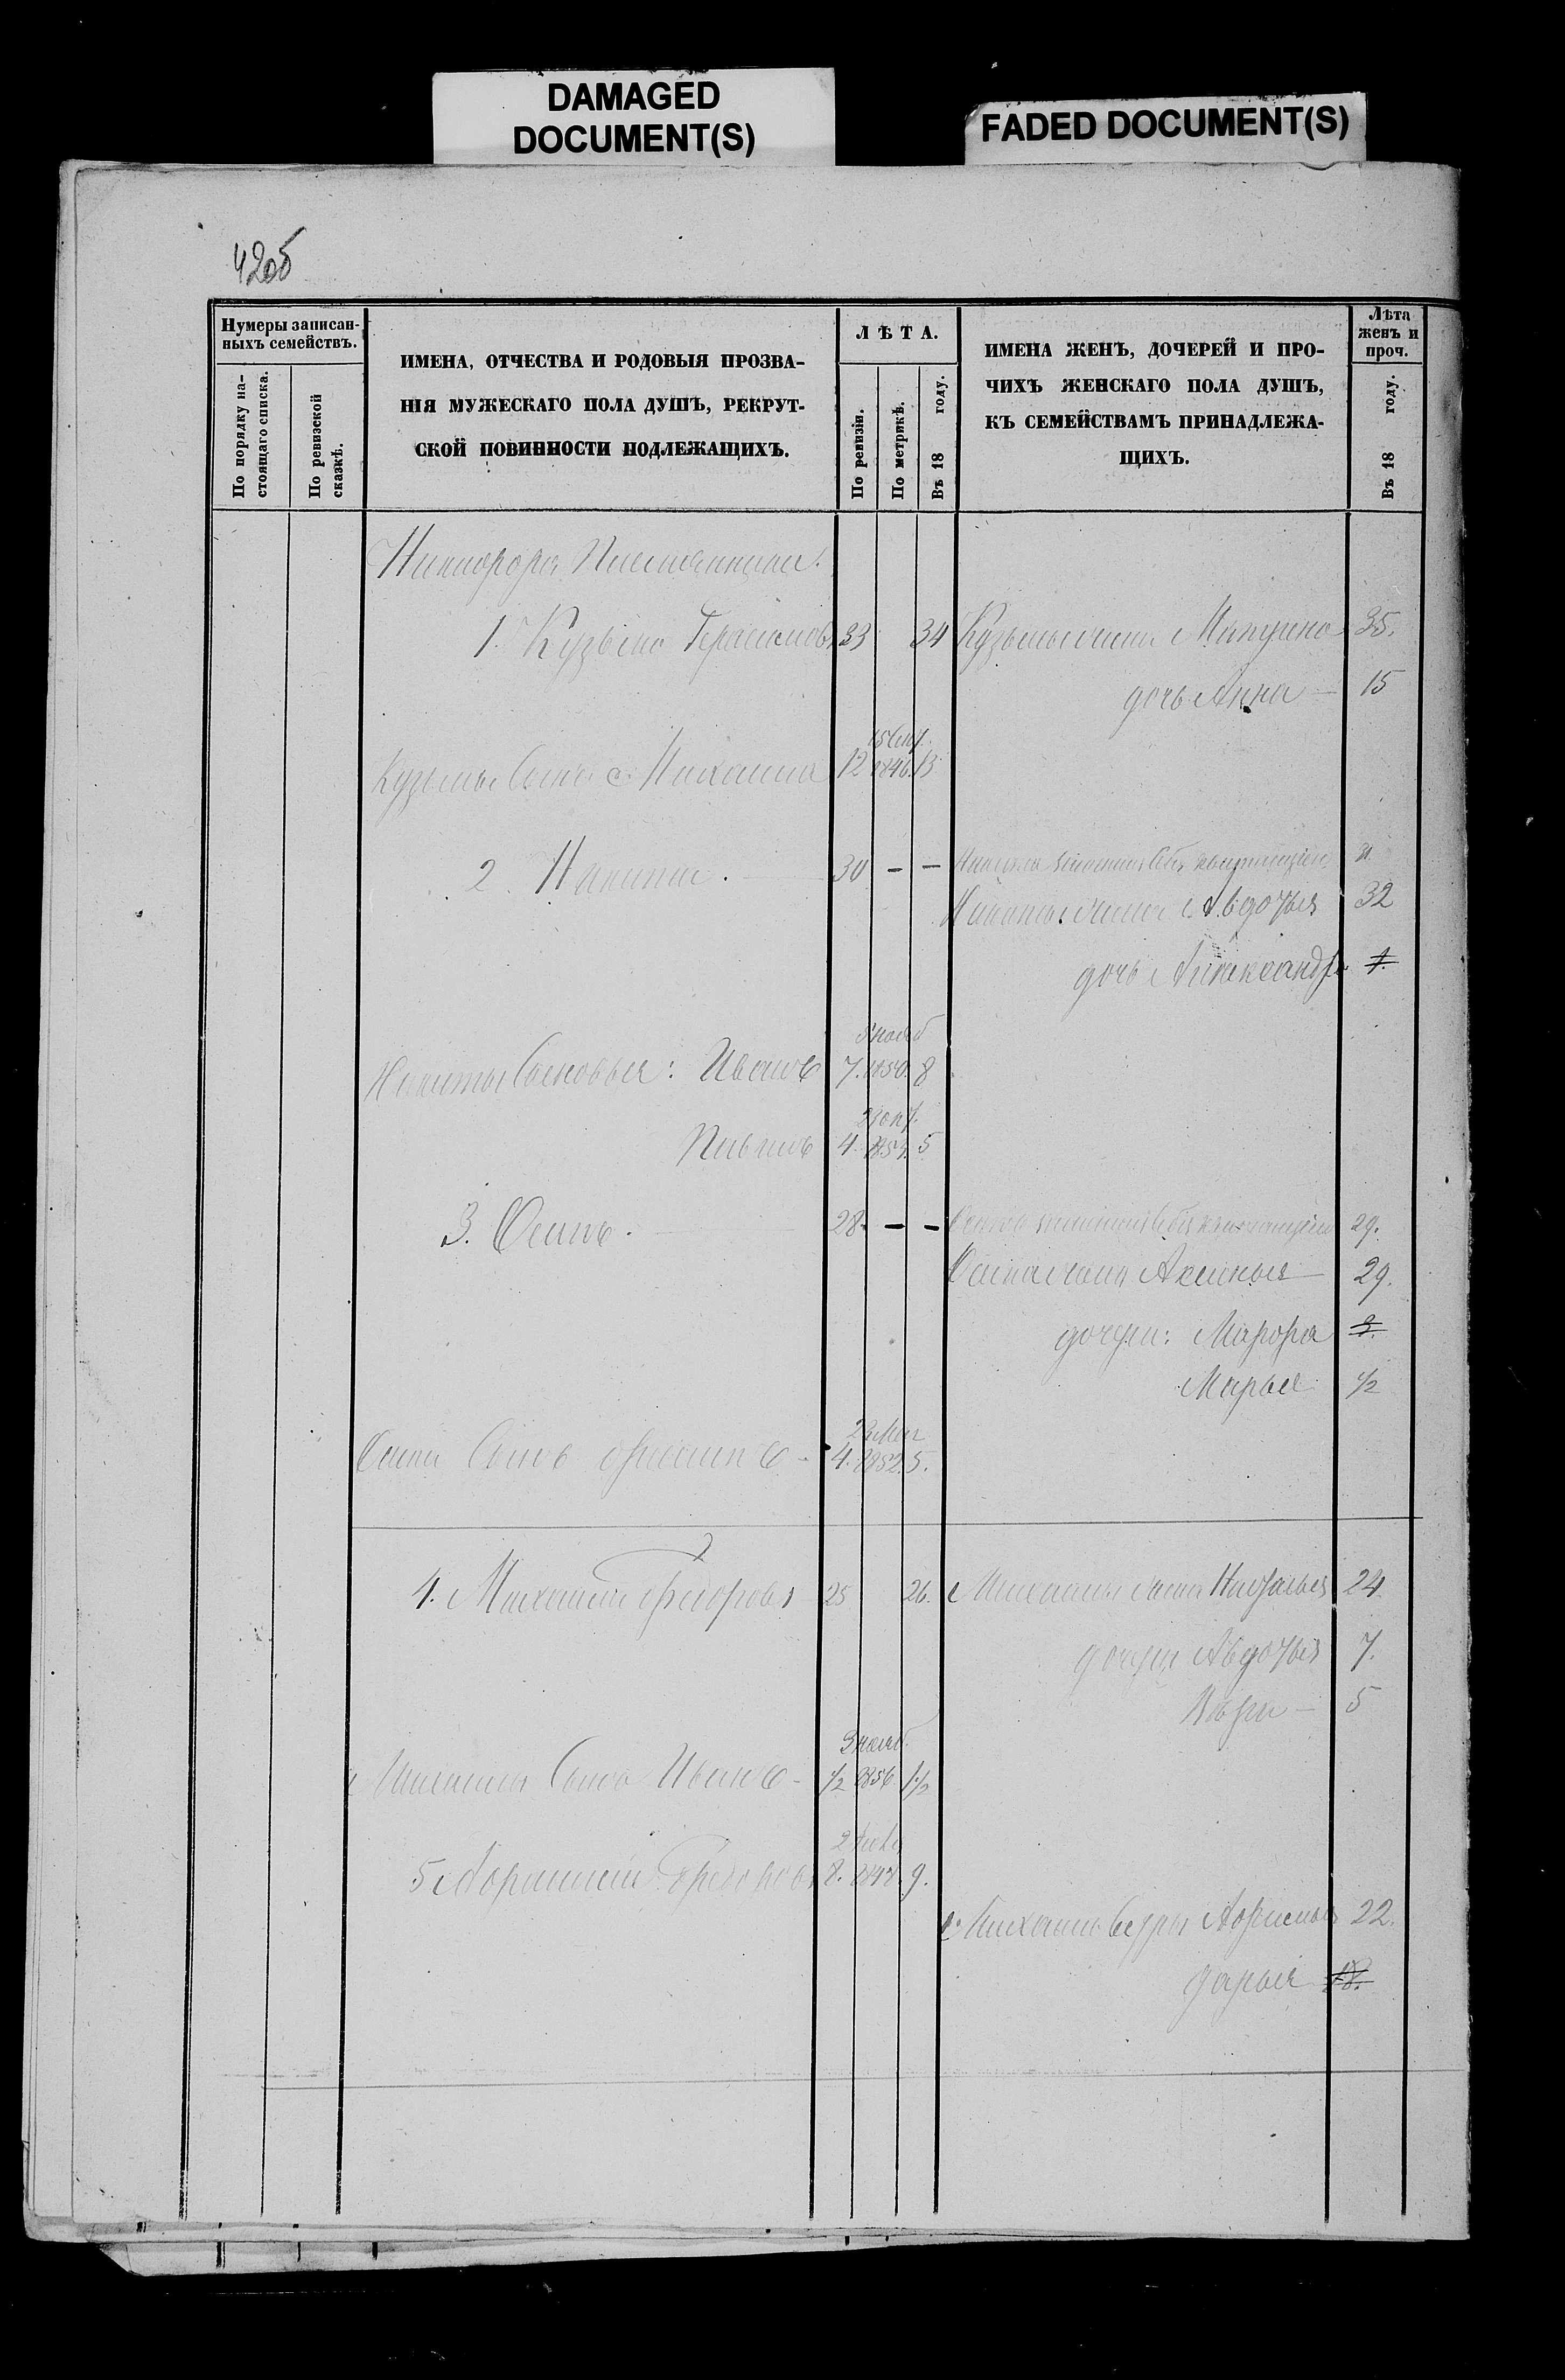 DAMAGED
DOCUMENT(S)
FADED DOCUMENT(S)
42об
Нумеры записан-
ныхъ семействъ.
По порядку на-
стоящаго списка.
По ревизской
сказкѣ.
ИМЕНА, ОТЧЕСТВА И РОДОВЫЯ ПРОЗВА-
НІЯ МУЖЕСКАГО ПОЛА ДУШЪ, РЕКРУТ-
СКОЙ ПОВИННОСТИ ПОДЛЕЖАЩИХЪ.
ЛѢТА.
По ревизіи.
По метрикѣ.
Въ 18 году.
ИМЕНА ЖЕНЪ, ДОЧЕРЕЙ И ПРО-
ЧИХЪ ЖЕНСКАГО ПОЛА ДУШЪ,
КЪ СЕМЕЙСТВАМЪ ПРИНАДЛЕЖА-
ЩИХЪ.
Лѣта
женъ и
проч.
Въ 18 году.
Никифора Племянники.
1. Кузьма Герасимовъ 33 34 Кузьмы жена 35.
дочь Анна — 15
15 Сент.
Кузьмы Сынъ Михаила 12 1846. 13
2. Никита. 30 — —
Никиты жена Авдотья 32
дочь Александра 1.
8 нояб
Никиты Сыновья: Иванъ 7. 1850. 8
окт.
Павелъ 4. 5
3. Осипъ. 28 — — 29.
Осипа жена Аксинья 29.
дочери: Марфа 3.
Марья 1/2
Мая
Осипа Сынъ Филипъ 4. 1852. 5.
4. Михаила Федоровъ 25 26. Михаилы жена Наталья 24
дочери Авдотья 7.
5
3 нояб.
Михаилы Сынъ Иванъ 1/2 1856 1 1/2
2
5. Федоровъ 8. 9.
Михаилы Сестры 22.
Дарья 18.